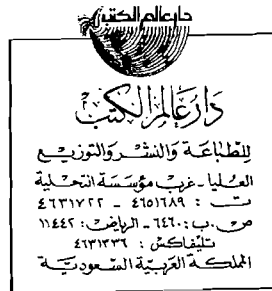 دار عالم الكتب
دَار عَالم الكتب
للطباعة والنشر والتوزيع
العليا - غرب مؤسسة التحلية
ت : ٤٦٥١٦٨٩ - ٤٦٣١٧٢٢
ص.ب : ٦٤٦٠ - الرياض : ١١٤٤٢
تليفاكس : ٤٦٣١٣٣٦
المملكة العربية السعودية